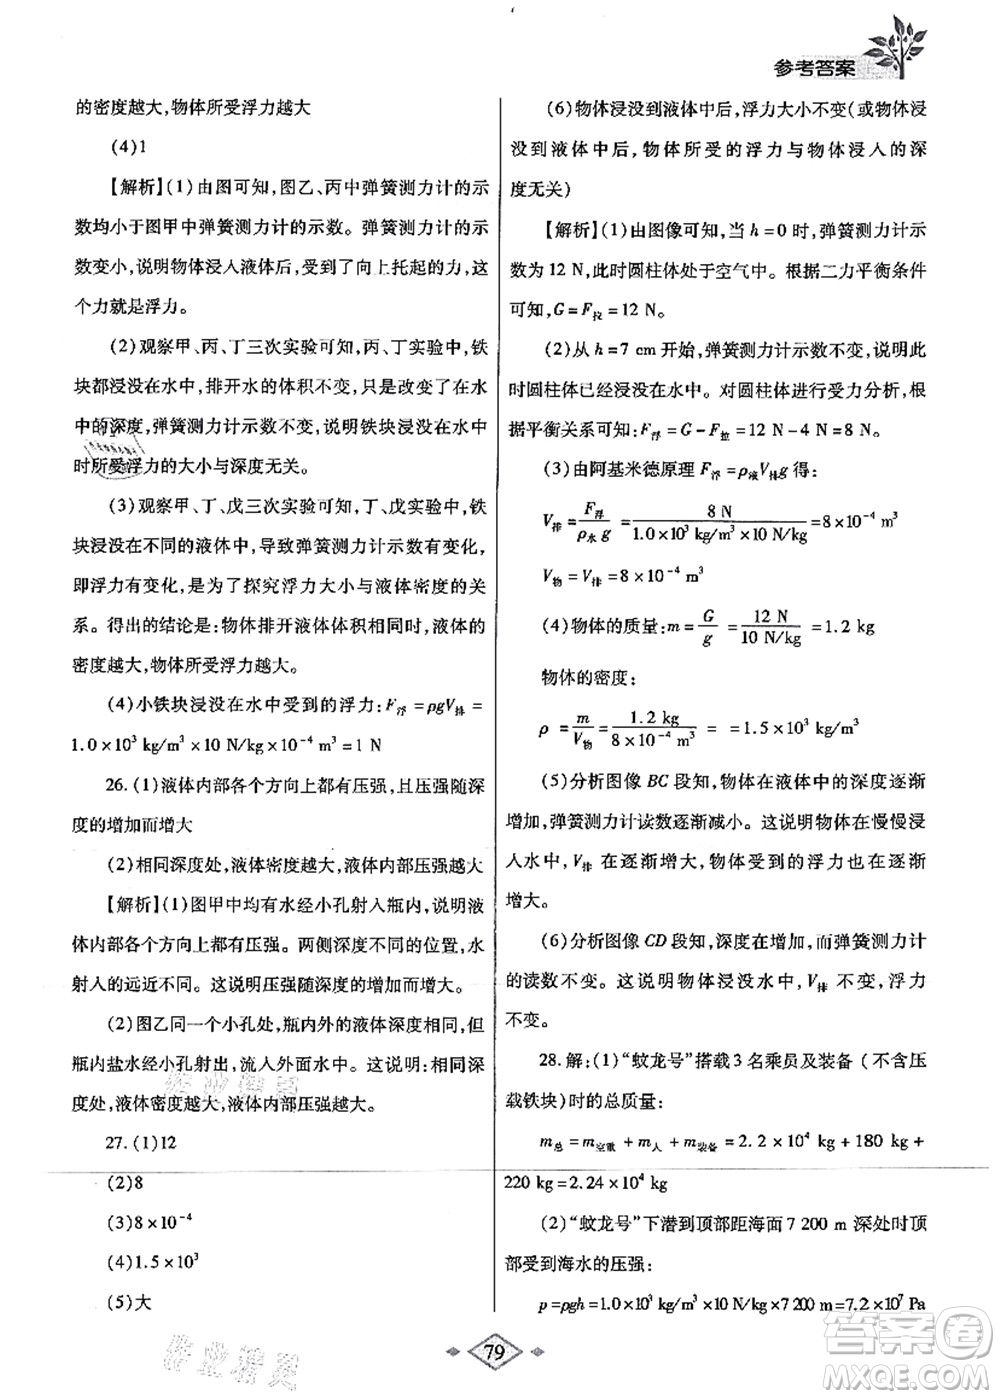 参考答案
的密度越大,物体所受浮力越大
(4)1
【解析】(1)由图可知,图乙、丙中弹簧测力计的示
数均小于图甲中弹簧测力计的示数。弹簧测力计的示
数变小,说明物体浸入液体后,受到了向上托起的力,这
个力就是浮力。
(2)观察甲、丙、丁三次实验可知,丙、丁实验中,铁
块都浸没在水中,排开水的体积不变,只是改变了在水
中的深度,弹簧测力计示数不变,说明铁块浸没在水中
时所受浮力的大小与深度无关。
(3)观察甲、丁、戊三次实验可知,丁、戊实验中,铁
块浸没在不同的液体中,导致弹簧测力计示数有变化,
即浮力有变化,是为了探究浮力大小与液体密度的关
系。得出的结论是:物体排开液体体积相同时,液体的
密度越大,物体所受浮力越大。
(4)小铁块浸没在水中受到的浮力:F浮=ρgV排=
1.0×10³ kg/m³×10 N/kg×10⁻⁴ m³=1 N
26.(1)液体内部各个方向上都有压强,且压强随深
度的增加而增大
(2)相同深度处,液体密度越大,液体内部压强越大
【解析】(1)图甲中均有水经小孔射入瓶内,说明液
体内部各个方向上都有压强。两侧深度不同的位置,水
射入的远近不同。这说明压强随深度的增加而增大。
(2)图乙同一个小孔处,瓶内外的液体深度相同,但
瓶内盐水经小孔射出,流入外面水中。这说明:相同深
度处,液体密度越大,液体内部压强越大。
27.(1)12
(2)8
(3)8×10⁻⁴
(4)1.5×10³
(5)大
(6)物体浸没到液体中后,浮力大小不变(或物体浸
没到液体中后,物体所受的浮力与物体浸入的深
度无关)
【解析】(1)由图像可知,当 h=0 时,弹簧测力计示
数为 12 N,此时圆柱体处于空气中。根据二力平衡条件
可知,G=F拉=12 N。
(2)从 h=7 cm 开始,弹簧测力计示数不变,说明此
时圆柱体已经浸没在水中。对圆柱体进行受力分析,根
据平衡关系可知:F浮=G-F拉=12 N-4 N=8 N。
(3)由阿基米德原理 F浮=ρ液V排g 得:
V排=F浮/ρ水g=8 N/1.0×10³ kg/m³×10 N/kg=8×10⁻⁴ m³
V物=V排=8×10⁻⁴ m³
(4)物体的质量:m=G/g=12 N/10 N/kg=1.2 kg
物体的密度:
ρ=m/V物=1.2 kg/8×10⁻⁴ m³==1.5×10³ kg/m³
(5)分析图像 BC 段知,物体在液体中的深度逐渐
增加,弹簧测力计读数逐渐减小。这说明物体在慢慢浸
入水中,V排 在逐渐增大,物体受到的浮力也在逐渐
增大。
(6)分析图像 CD 段知,深度在增加,而弹簧测力计
的读数不变。这说明物体浸没水中,V排 不变,浮力
不变。
28.解:(1)“蚊龙号”搭载 3 名乘员及装备(不含压
载铁块)时的总质量:
m总=m空重+m人+m装备=2.2×10⁴ kg+180 kg+
220 kg=2.24×10⁴ kg
(2)“蚊龙号”下潜到顶部距海面 7 200 m 深处时顶
部受到海水的压强:
p=ρgh=1.0×10³ kg/m³×10 N/kg×7 200 m=7.2×10⁷ Pa
79
作业精灵
作业精灵
答案圈
MXQE.COM